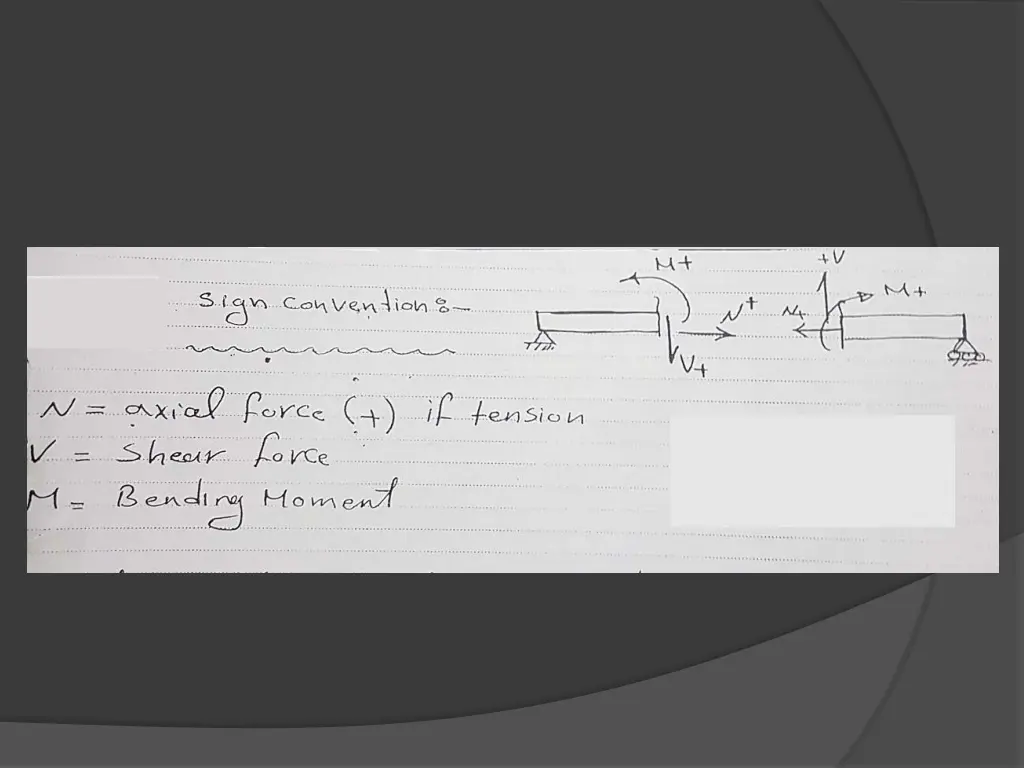 Sign convention:-
M+
N+
V+
+V
M+
N+
N = axial force (+) if tension
V = Shear force
M = Bending Moment